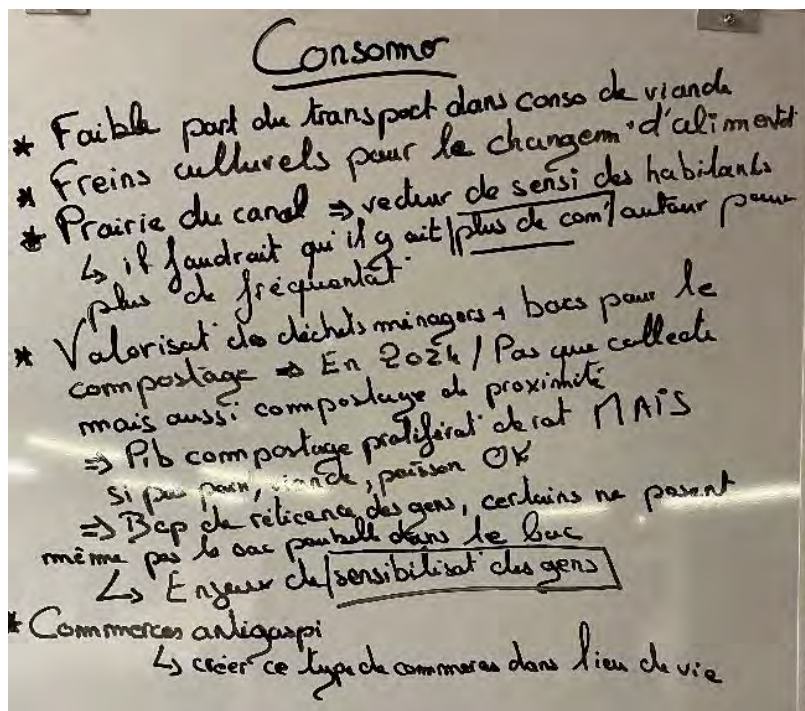 Consomer
* Faible part du transport dans conso de viande
* Freins culturels pour le changemt d'alimentat°
* Prairie du canal => vecteur de sensi des habitants
↳ il faudrait qu'il y ait plus de com' autour pour
plus de fréquentat°
* Valorisat° des déchets ménagers + bacs pour le
compostage => En 2024 / Pas que collecte
mais aussi compostage de proximité
=> Pb compostage proliférat° de rat MAIS
si pas pain, viande, poisson OK
=> Bcp de réticence des gens, certains ne posent
même pas le sac poubelle dans le bac
↳ Enjeux de sensibilisat° des gens
* Commerces antigaspi
↳ créer ce type de commerces dans lieu de vie